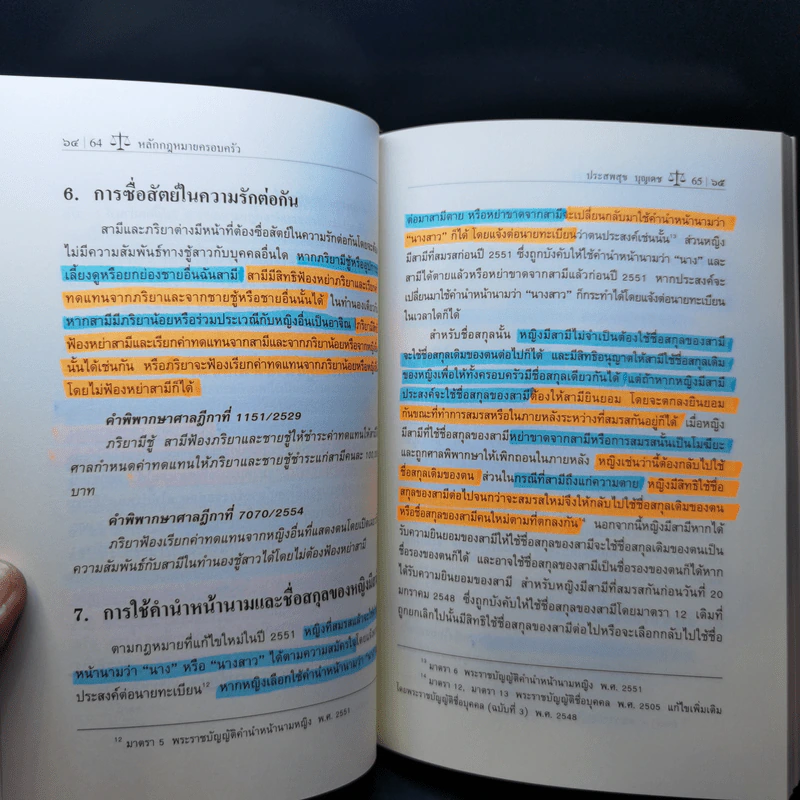 ๖๔ | 64 หลักกฎหมายครอบครัว
6. การซื่อสัตย์ในความรักต่อกัน
สามีและภริยาต่างมีหน้าที่ต้องซื่อสัตย์ในความรักต่อกันโดยจะต้อง
ไม่มีความสัมพันธ์ทางชู้สาวกับบุคคลอื่นใด หากภริยามีชู้หรือ
เลี้ยงดูหรือยกย่องชายอื่นฉันสามี สามีมีสิทธิฟ้องหย่าภริยาและเรียก
ทดแทนจากภริยาและจากชายชู้หรือชายอื่นนั้นได้ ในทำนองเดียว
หากสามีมีภริยาน้อยหรือร่วมประเวณีกับหญิงอื่นเป็นอาจิณ ภริยามี
ฟ้องสามีและเรียกค่าทดแทนจากสามีและจากภริยาน้อยหรือจากหญิง
นั้นได้เช่นกัน หรือภริยาจะฟ้องเรียกค่าทดแทนจากภริยาน้อยหรือ
โดยไม่ฟ้องหย่าสามีก็ได้
คำพิพากษาศาลฎีกาที่ 1151/2529
ภริยามีชู้ สามีฟ้องภริยาและชายชู้ให้ชำระค่าทดแทนให้
ศาลกำหนดค่าทดแทนให้ภริยาและชายชู้ชำระแก่สามีคนละ
บาท
คำพิพากษาศาลฎีกาที่ 7070/2554
ภริยาฟ้องเรียกค่าทดแทนจากหญิงอื่นที่แสดงตนโดยเปิดเผย
ความสัมพันธ์กับสามีในทำนองชู้สาวได้โดยไม่ต้องฟ้องหย่าสามี
7. การใช้คำนำหน้านามและชื่อสกุลของหญิงมี
ตามกฎหมายที่แก้ไขใหม่ในปี 2551 หญิงที่สมรสแล้วจะใช้
หน้านามว่า “นาง” หรือ “นางสาว” ได้ตามความสมัครใจโดย
ประสงค์ต่อนายทะเบียน¹² หากหญิงเลือกใช้คำนำหน้านามว่า
¹² มาตรา 5 พระราชบัญญัติคำนำหน้านามหญิง พ.ศ. 2551
ประสพสุข บุญเดช 65 | ๖๕
ต่อมาสามีตาย หรือหย่าขาดจากสามีจะเปลี่ยนกลับมาใช้คำนำหน้านามว่า
“นางสาว” ก็ได้ โดยแจ้งต่อนายทะเบียนว่าตนประสงค์เช่นนั้น¹³ ส่วนหญิง
มีสามีที่สมรสก่อนปี 2551 ซึ่งถูกบังคับให้ใช้คำนำหน้านามว่า “นาง” และ
สามีได้ตายแล้วหรือหย่าขาดจากสามีแล้วก่อนปี 2551 หากประสงค์จะ
เปลี่ยนมาใช้คำนำหน้านามว่า “นางสาว” ก็กระทำได้โดยแจ้งต่อนายทะเบียน
ในเวลาใดก็ได้
สำหรับชื่อสกุลนั้น หญิงมีสามีไม่จำเป็นต้องใช้ชื่อสกุลของสามี
จะใช้ชื่อสกุลเดิมของตนต่อไปก็ได้ และมีสิทธิอนุญาตให้สามีใช้ชื่อสกุลเดิม
ของหญิงเพื่อให้ทั้งครอบครัวมีชื่อสกุลเดียวกันได้ แต่ถ้าหากหญิงมีสามี
ประสงค์จะใช้ชื่อสกุลของสามีต้องให้สามียินยอม โดยจะตกลงยินยอม
กันขณะที่ทำการสมรสหรือในภายหลังระหว่างที่สมรสกันอยู่ก็ได้ เมื่อหญิง
มีสามีที่ใช้ชื่อสกุลของสามีหย่าขาดจากสามีหรือการสมรสนั้นเป็นโมฆียะ
และถูกศาลพิพากษาให้เพิกถอนในภายหลัง หญิงเช่นว่านี้ต้องกลับไปใช้
ชื่อสกุลเดิมของตน ส่วนในกรณีที่สามีถึงแก่ความตาย หญิงมีสิทธิใช้ชื่อ
สกุลของสามีต่อไปจนกว่าจะสมรสใหม่จึงให้กลับไปใช้ชื่อสกุลเดิมของตน
หรือชื่อสกุลของสามีคนใหม่ตามที่ตกลงกัน¹⁴ นอกจากนี้หญิงมีสามีหากได้
รับความยินยอมของสามีให้ใช้ชื่อสกุลของสามีจะใช้ชื่อสกุลเดิมของตนเป็น
ชื่อรองของตนก็ได้ และอาจใช้ชื่อสกุลของสามีเป็นชื่อรองของตนก็ได้หาก
ได้รับความยินยอมของสามี สำหรับหญิงมีสามีที่สมรสกันก่อนวันที่ 20
มกราคม 2548 ซึ่งถูกบังคับให้ใช้ชื่อสกุลของสามีโดยมาตรา 12 เดิมที่
ถูกยกเลิกไปนั้นมีสิทธิใช้ชื่อสกุลของสามีต่อไปหรือจะเลือกกลับไปใช้ชื่อ
¹³ มาตรา 6 พระราชบัญญัติคำนำหน้านามหญิง พ.ศ. 2551
¹⁴ มาตรา 12, มาตรา 13 พระราชบัญญัติชื่อบุคคล พ.ศ. 2505 แก้ไขเพิ่มเติม
โดยพระราชบัญญัติชื่อบุคคล (ฉบับที่ 3) พ.ศ. 2548